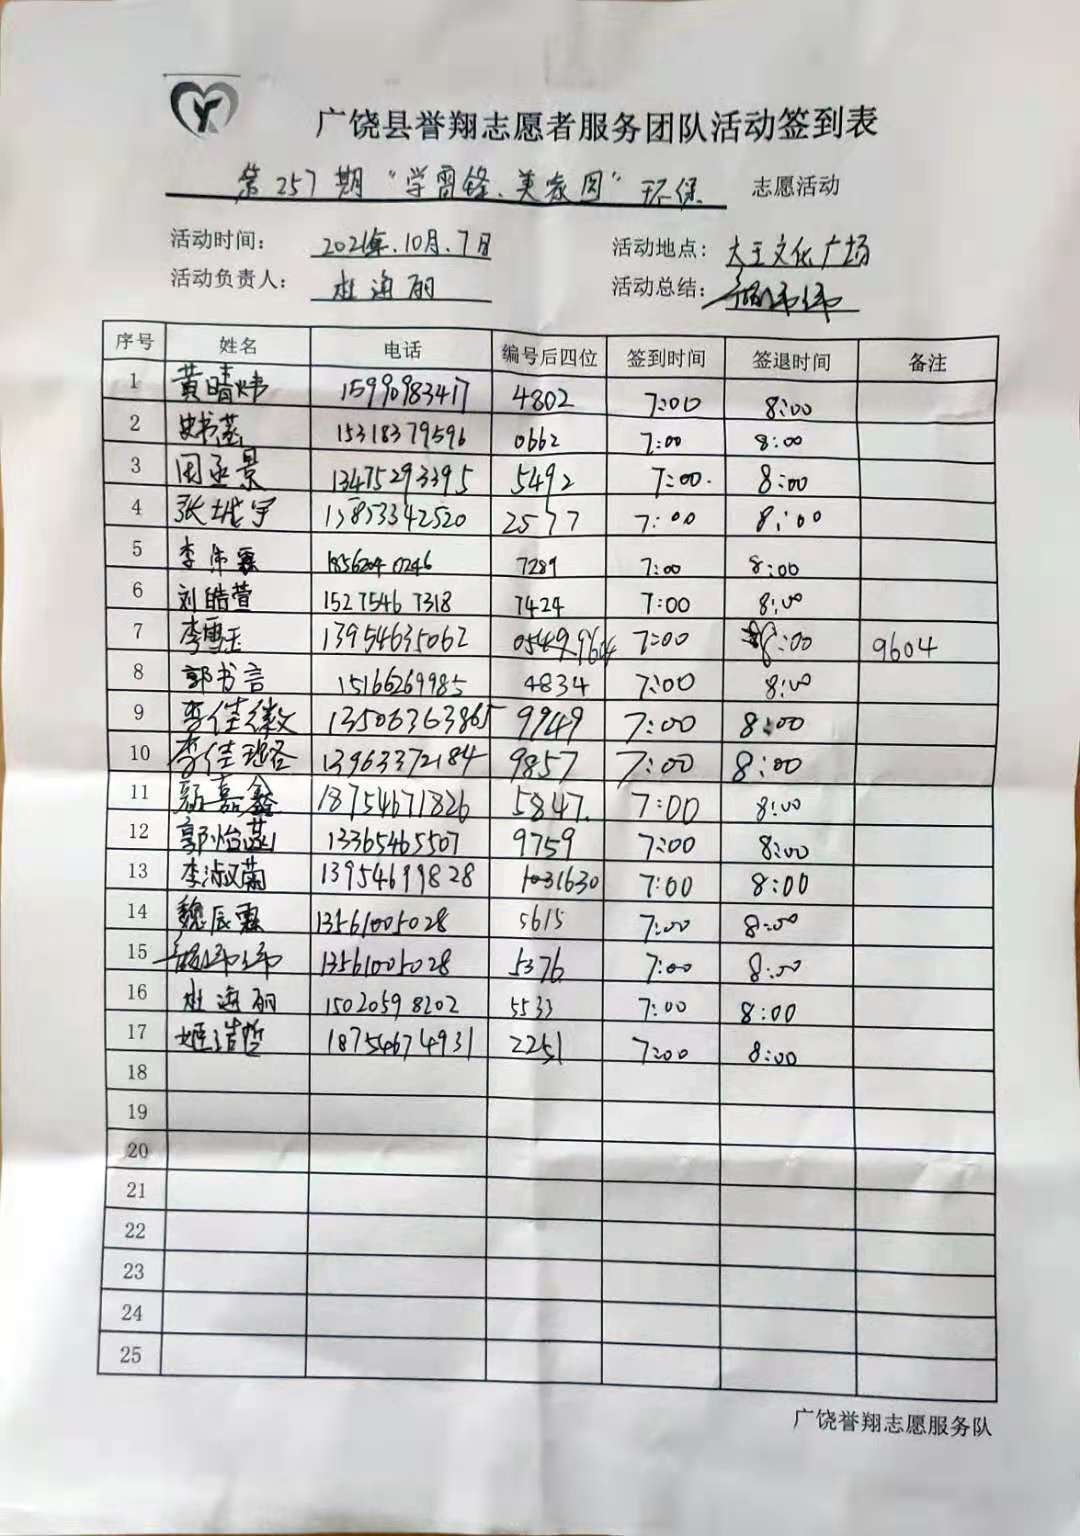 广饶县誉翔志愿者服务团队活动签到表
第257期"学雷锋、美家园"环保 志愿活动
活动时间： 2021年.10月.7日 活动地点： 大王文化广场
活动负责人： 杜海丽 活动总结：
序号 姓名 电话 编号后四位 签到时间 签退时间 备注
1 黄晴炜 15990983417 4802 7:00 8:00
2 15318379596 0662 7:00 8:00
3 周丞景 13475293395 5492 7:00. 8:00
4 张城宇 13853342520 2577 7:00 8:00
5 李沛霖 1856204 0246 7289 7:00 8:00
6 刘皓萱 1527546 7318 7424 7:00 8:00
7 李雪玉 13954635062 7:00 :00 9604
8 郭书言 15166269985 4834 7:00 8:00
9 李佳徽 13506363865 9949 7:00 8:00
10 李佳璐 13963372184 9857 7:00 8:00
11 嘉鑫 18754671826 5847. 7:00 8:00
12 郭怡菡 13365465507 9759 7:00 8:00
13 李淑菊 13954699828 1630 7:00 8:00
14 魏辰霖 13561005028 5615 7:00 8:00
15 13561005028 5376 7:00 8:00
16 杜海丽 15020598202 5533 7:00 8:00
17 姬浩哲 18754674931 2251 7:00 8:00
18
19
20
21
22
23
24
25
广饶誉翔志愿服务队